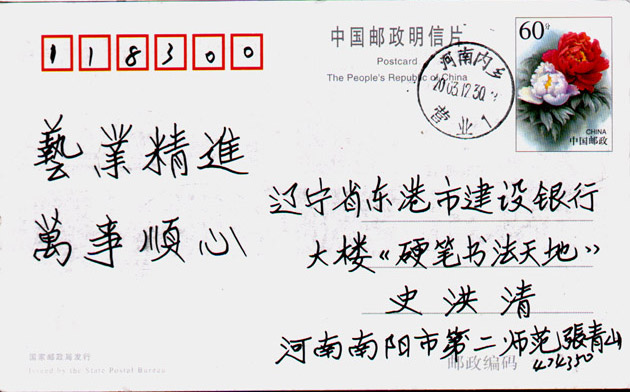 118300
中国邮政明信片
Postcard
The People's Republic of China
60分
CHINA
中国邮政
河南内乡
2003.12.30
营业1
藝業精進
萬事順心
辽宁省东港市建设银行
大楼《硬笔书法天地》
史洪清
河南南阳市第二师范張青山
邮政编码
474350
国家邮政局发行
Issued by the State Postal Bureau